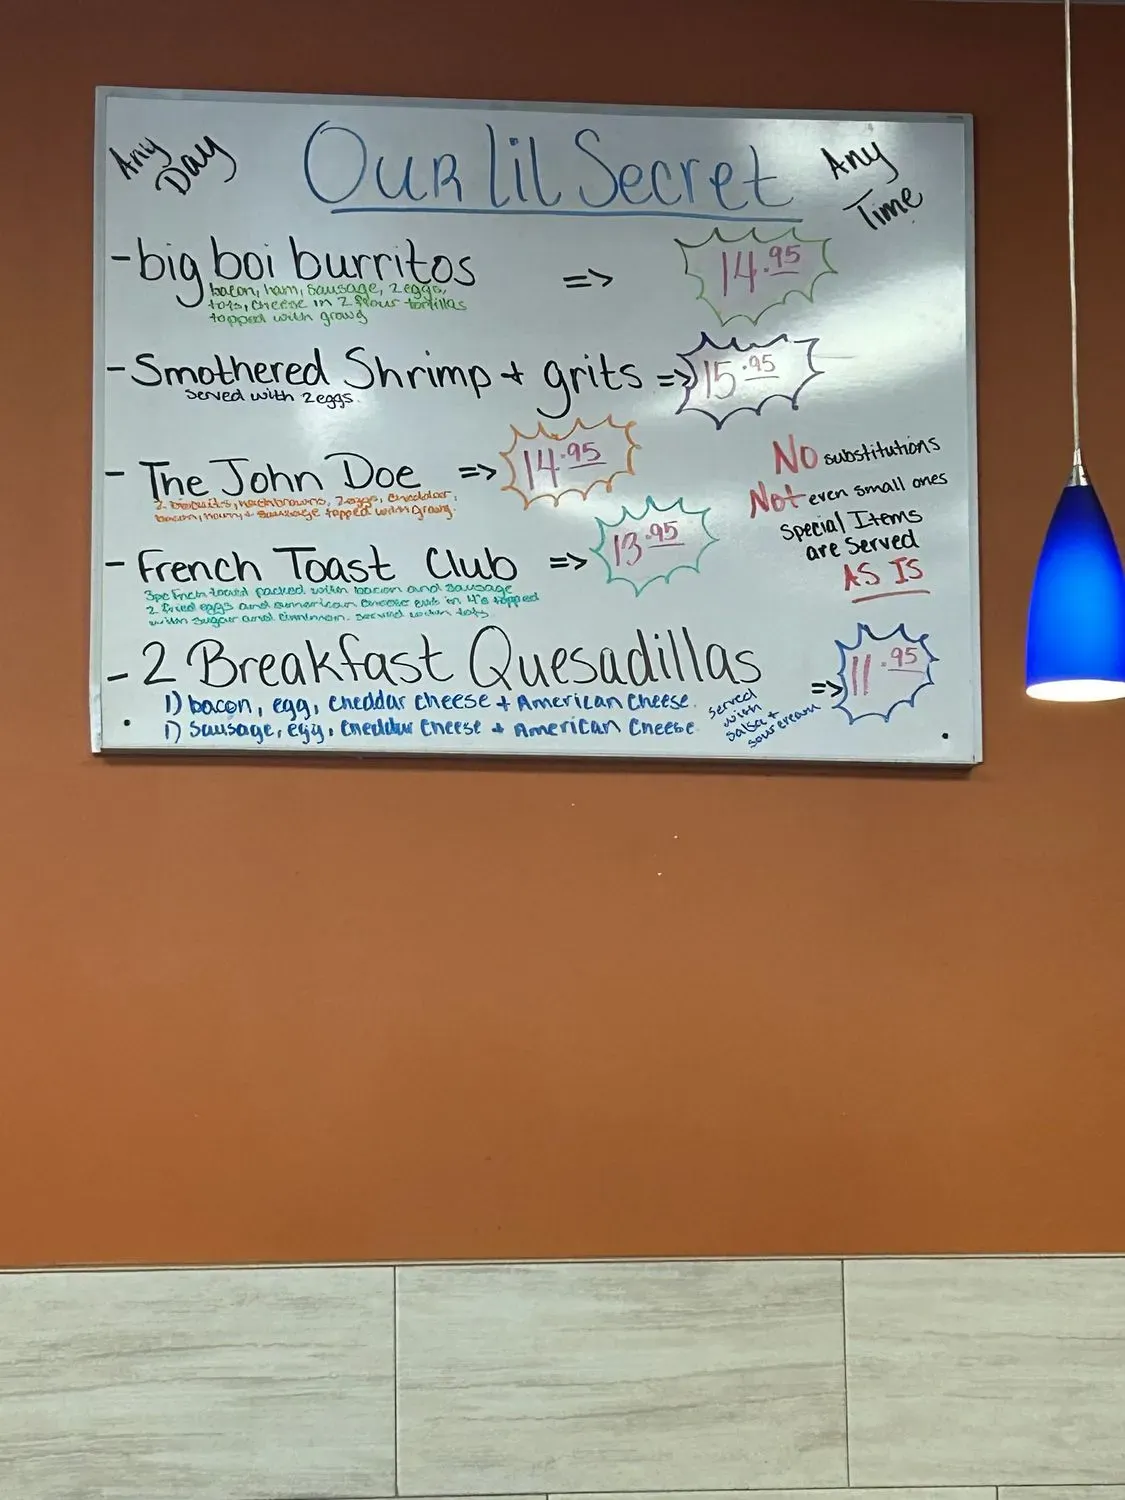 Any Day
Our lil Secret
Any Time
- big boi burritos => 14.95
bacon, ham, sausage, 2 eggs,
tots, cheese in 2 flour tortillas
topped with gravy
- Smothered Shrimp + grits => 15.95
served with 2 eggs
- The John Doe => 14.95
2 biscuits, hashbrowns, 2 eggs, cheddar,
bacon, ham, + sausage topped with gravy.
No substitutions
Not even small ones
Special Items
are served
AS IS
- French Toast Club => 13.95
3pc french toast packed with bacon and sausage
2 fried eggs and american cheese cut in 4's topped
with sugar and cinnimon. served with tots
- 2 Breakfast Quesadillas => 11.95
1) bacon, egg, cheddar cheese + American Cheese
1) Sausage, egg, cheddar cheese + American Cheese
served
with
salsa +
sour cream